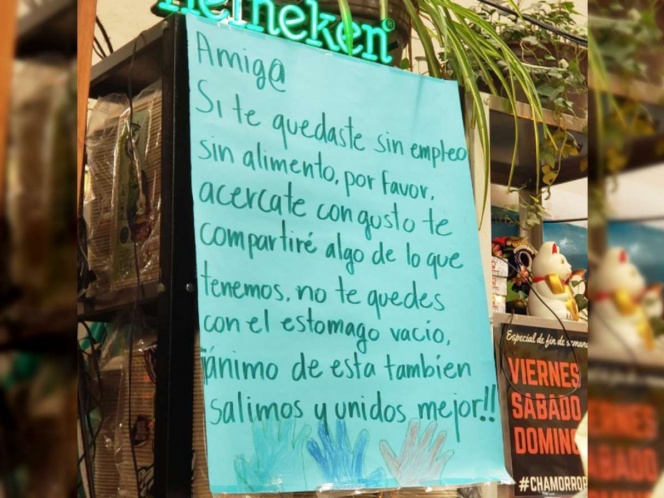 Heineken
Amig@
Si te quedaste sin empleo
sin alimento, por favor,
acercate con gusto te
compartiré algo de lo que
tenemos, no te quedes
con el estomago vacio,
ánimo de esta tambien
salimos y unidos mejor!!
Especial de fin de semana
VIERNES
SABADO
DOMING
#CHAMORRO